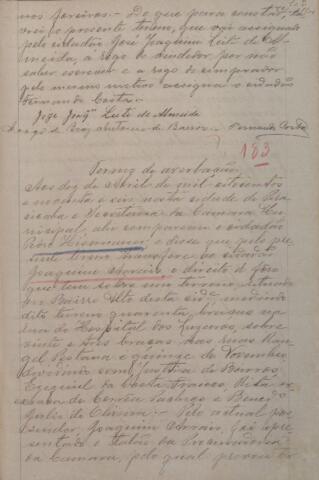 nos foreiros. - Do que para constar,
o presente termo, que vai assignado
pelo cidadão José Joaquim Leite de Al-
meida, a rogo do vendedor, por não
saber escrever e a rogo do comprador
pelo mesmo motivo assigna o cidadão
Fernando Costa.
José Joaqm Leite de Almeida
A rogo de Antonio de Barros - Fernando Costa
183
Termo de averbação
Aos dez de Abril de mil oitocentos
e noventa e um nesta cidade de Pira
cicaba e Secretaria da Camara Mu
nicipal, ahi compareceu o cidadão
e disse que pelo pre
sente termo transfere ao cidadão
Joaquim o direito de foro
que tem sobre um terreno situado
no Bairro Alto desta cidade, medindo
dito terreno quarenta braças na
rua do Hospital dos Lazaros, sobre
vinte e tres braças nas ruas Ran
gel Pestana e quinze de Novembro
dividindo com Justina de Barros,
Ezequiel da Costa
de Corrêa Pacheco e Bene
de Oliveira. - Pelo actual pos
suidor, Joaquim foi apre
sentado o talão da Procuradoria
da Camara, pelo qual provou ter